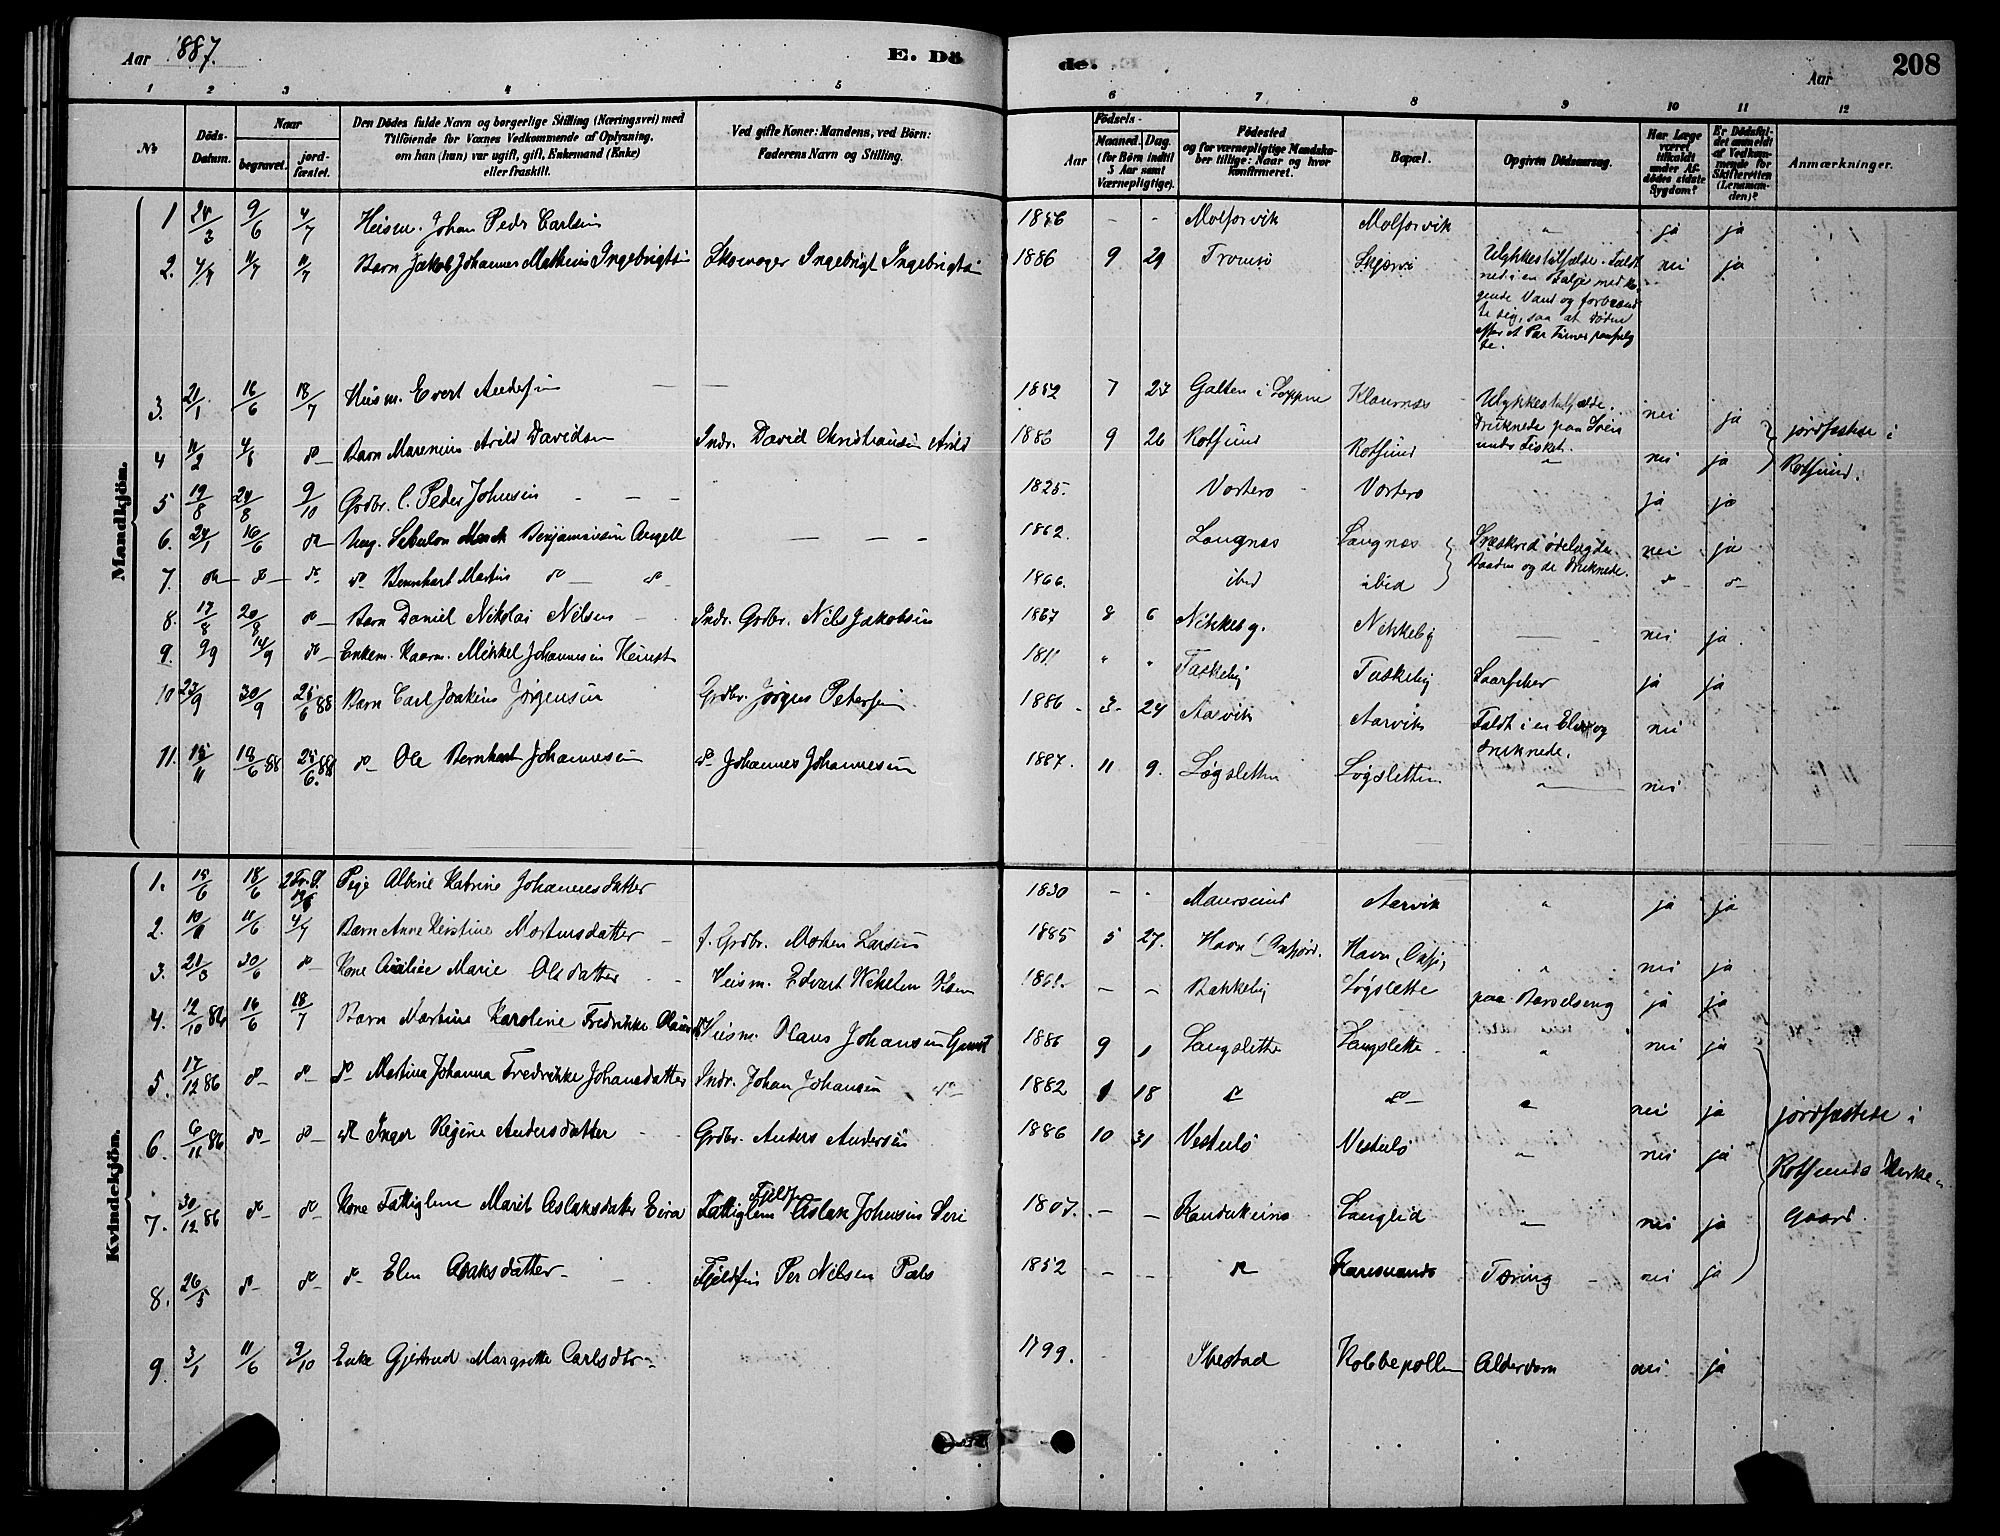 Aar 1887.
E. Dö
de.
Aar
208
1 2 3 4 5 6 7 8 9 10 11 12
No
Döds-
Datum.
Naar
begravet.
jord-
fæstet.
Den Dödes fulde Navn og borgerlige Stilling (Næringsvei) med
Tilföiende for Voxnes Vedkommende af Oplysning,
om han (hun) var ugift, gift, Enkemand (Enke)
eller fraskilt.
Ved gifte Koner: Mandens, ved Börn:
Faderens Navn og Stilling.
Födsels-
Aar
Maaned.
Dag.
(for Börn indtil
5 Aar samt
Værnepligtige).
Födested
og for værnepligtige Mandska-
ber tillige: Naar og hvor
konfirmeret.
Bopæl.
Opgiven Dödsaarsag.
Har Læge
været
tilkaldt
under Af-
dødes sidste
Sygdom?
Er Dödsfal-
det anmeldt
af Vedkom-
mende for
Skifteretten
(Lensman-
den)?
Anmærkninger.
Mandkjön.
1 24/3 9/6 4/7 Husm. Johan Peder Carlsen 1856 - - Molforvik Molforvik " ja ja
2. 4/7 11/7 11/7 Barn Jakob Johannes Matheus Ingebrigts Ingebrigt Ingebrigts 1886 9 29 Tromsö Skjervö Ulykkestilfælde. Faldt nei ja
ned i en Balje med ko-
gende Vand og forbrænd-
te sig, saa at Döden
efter et Par Timer paafulg
te.
3. 21/1 16/6 18/7 Husm. Evert Andersen - - 1852 7 27 Galten i Loppen Klauvnes Ulykkestilfælde. nei ja
Druknede paa
under Fisket.
4 11/2 4/6 do- Barn Marenius Arild Davidsen Indr. David Christiansen Arild 1886 9 26 Rotsund Rotsund " nei ja jordfæstede i
Rotsund.
5 19/8 24/8 9/10 Grdbr. C. Peder Johnsen - - - 1825. Vorterö Vorterö ja ja
6. 24/1 16/6 do- Ung. Sebulon Benjaminsen Angell - - - - 1862. Langnes Langnes Sneskred ödelagde nei ja
Baaden og de druknede.
7. do- do- do. do Bernhart Martin do- do- 1866. ibid ibid do- do-
8. 17/8 20/8 do- Barn Daniel Nikolai Nilsen - Indr. Grdbr. Nils Jakobsen 1867 8 6 Nikkeby. Nikkeby - nei ja
9. 9/9 14/9 do- Enkem. Mikkel Johannesen " " Taskeby Taskeby ja ja
10 23/9 30/9 25/6 88 Barn Carl Joakim Jörgensen Grdbr. Jörgen Petersen 1886 - 3 - 24 Aarvik Aarvik Faldt i en Elv og nei
druknede.
11. 15/11 18/6 88 25/6 88. do- Ole Bernhart Johannesen do- Johannes Johannesen 1887. 11 9. Lögsletten Lögsletten " nei
Kvindekjön.
1. 15/6 18/6 Pige Albine Katrine Johannesdatter 1830 - - Maursund Aarvik " ja ja
2. 11/6 4/7 Barn Anne Kirstine Mortensdatter - f. Grdbr. Morten Larsen 1885 5 27. Havn Havn " nei ja
3. 21/3 30/6 do- Kone Marie Olsdatter - - Husm. Edvart - - Bakkeby Lögslette paa Barselseng ja ja
4. 12/10 86 16/6 18/7 Barn Martine Karoline Fredrikke Husm. Olaus Johansen 1886 9 1 Langslette Langslette - " nei ja
5. 17/12 86 do- do- do Martina Johanna Fredrikke Johansdatter Indr. Johan Johansen do- 1882 1 18 do do- " nei ja
jordfæstede i
Rotsunds Kirke-
gaard.
6. 6/11 86 do- do- do Inger Regine Andersdatter - - Grdbr. Anders Andersen 1886 10 31 Vesterlö Vesterlö " nei ja
7. 30/12 86 do- do- Kone Fattiglem Marit Aslaksdatter Eira Fattiglem Fjeldfin Aslak Johnsen 1807. - - Kautokeino Langlid " nei ja
8. 26/5 do- do- do- Elen Aslaksdatter - - Fjeldfin Per Nilsen 1852 - - do Karesuando Tæring - nei ja
9 3/1 11/6 9/10 Enke Gjertrud Margrette Carlsdtr - 1799. - Ibestad Kobbepollen Alderdom nei. ja